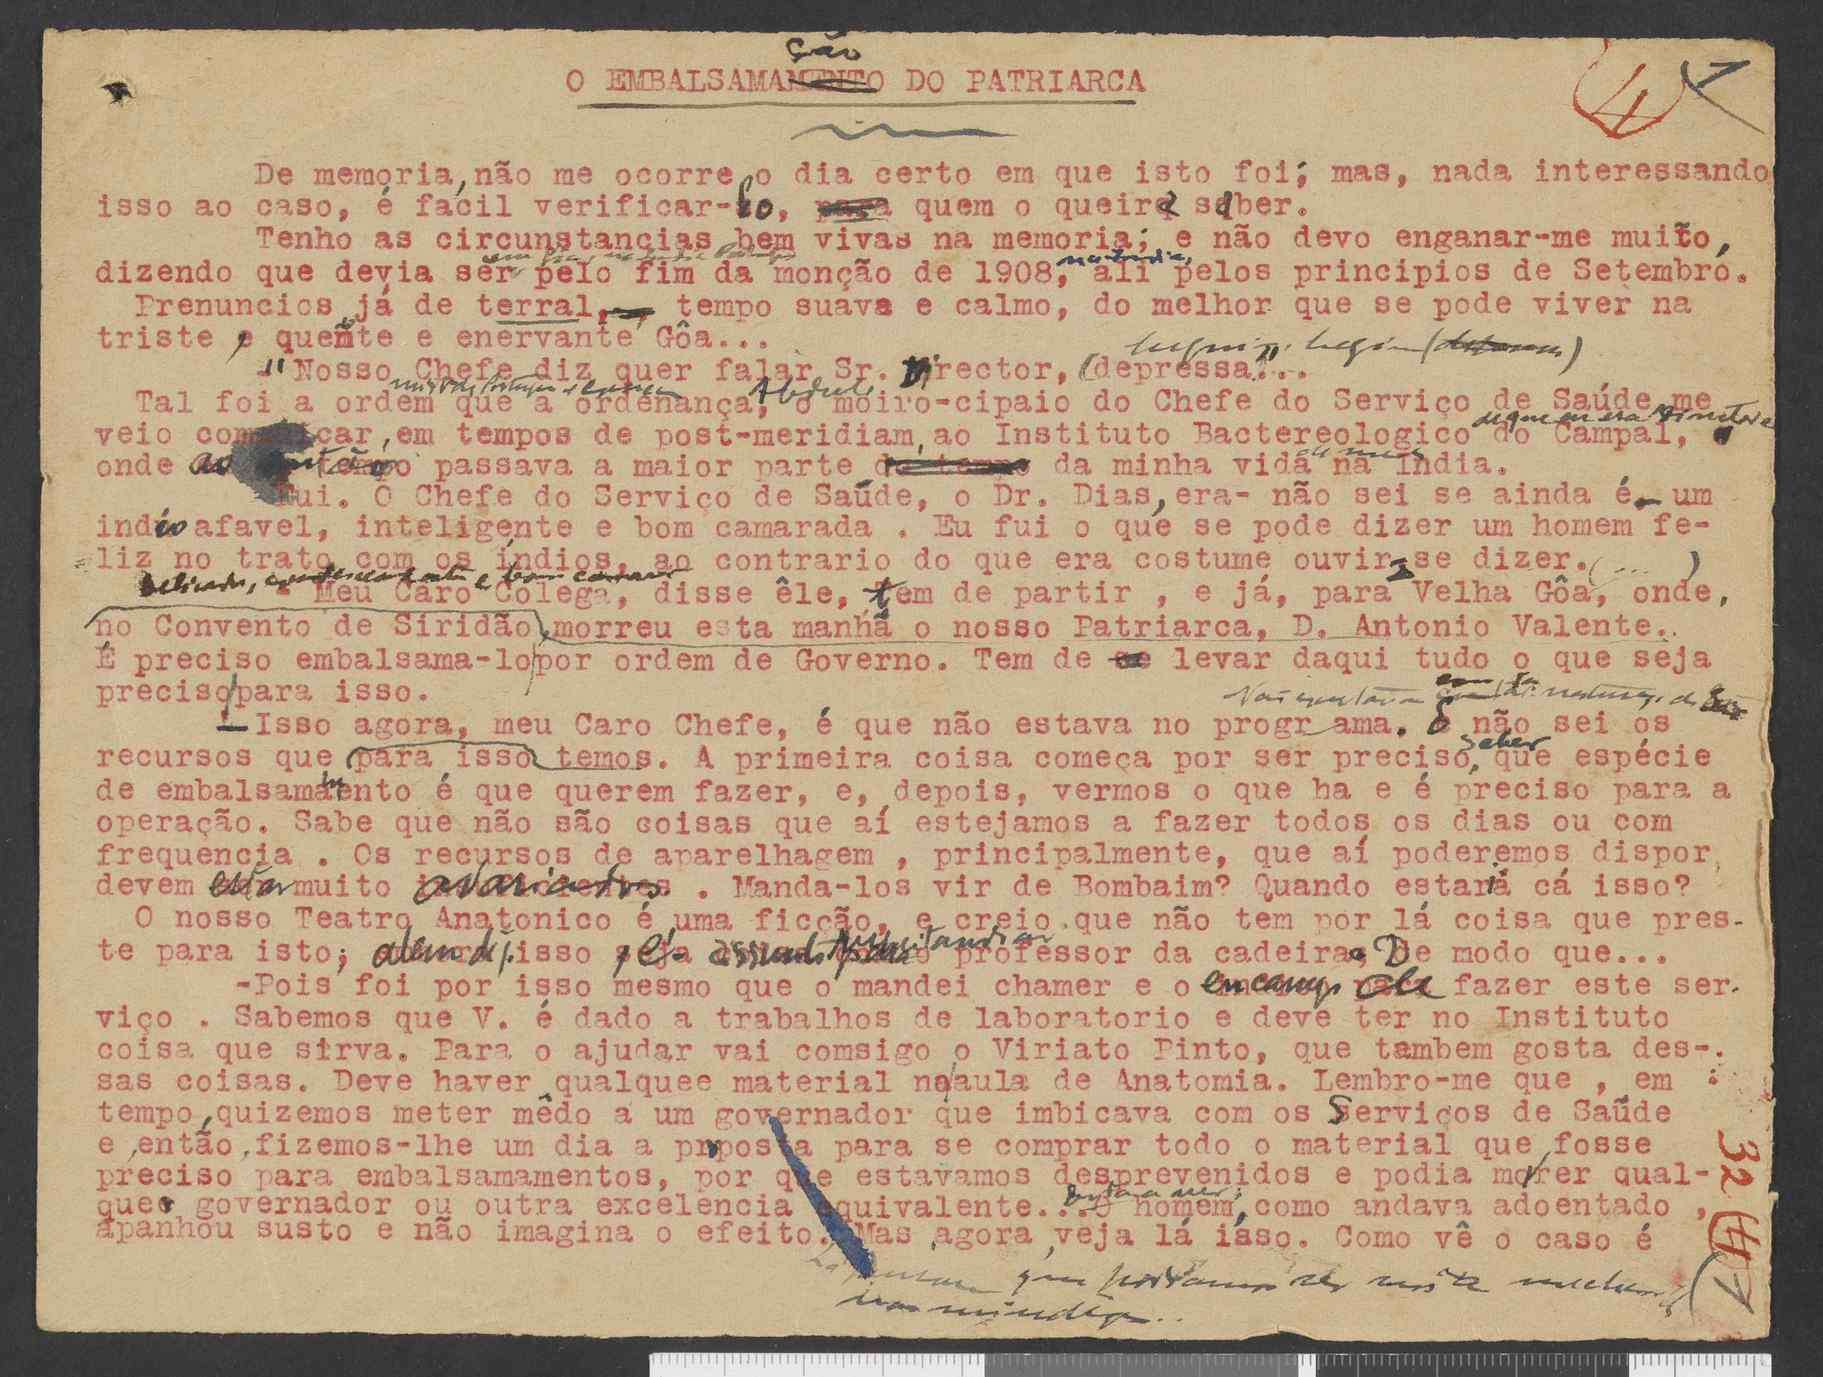 ção
O EMBALSAMAMENTO DO PATRIARCA
4 1
De memoria, não me ocorre o dia certo em que isto foi; mas, nada interessando
isso ao caso, é facil verificar-lo, para quem o queira saber.
Tenho as circunstancias bem vivas na memoria; e não devo enganar-me muito,
na India,
dizendo que devia ser pelo fim da monção de 1908, ali pelos principios de Setembro.
Prenuncios já de terral, tempo suave e calmo, do melhor que se pode viver na
triste e quente e enervante Gôa...
"Nosso Chefe diz quer falar Sr. Director, (depressa"...
Abdul
Tal foi a ordem que a ordenança, o moiro-cipaio do Chefe do Serviço de Saúde me
de que eu era Director
veio comunicar, em tempos de post-meridiam, ao Instituto Bactereologico do Campal,
onde ao tempo passava a maior parte do tempo da minha vida na India.
Fui. O Chefe do Serviço de Saúde, o Dr. Dias, era- não sei se ainda é- um
indio afavel, inteligente e bom camarada . Eu fui o que se pode dizer um homem fe-
liz no trato com os índios, ao contrario do que era costume ouvir-se dizer. (...)
Delicado, e bom camarada
- Meu Caro Colega, disse êle, tem de partir , e já, para Velha Gôa, onde,
no Convento de Siridão, morreu esta manhã o nosso Patriarca, D. Antonio Valente.
É preciso embalsama-lo por ordem de Governo. Tem de se levar daqui tudo o que seja
preciso para isso.
-Isso agora, meu Caro Chefe, é que não estava no progr ama. E não sei os
saber
recursos que para isso temos. A primeira coisa começa por ser preciso, que espécie
de embalsamamento é que querem fazer, e, depois, vermos o que ha e é preciso para a
operação. Sabe que não são coisas que aí estejamos a fazer todos os dias ou com
frequencia . Os recursos de aparelhagem , principalmente, que aí poderemos dispor,
devem estar muito avariados . Manda-los vir de Bombaim? Quando estaria cá isso?
O nosso Teatro Anatonico é uma ficção, e creio que não tem por lá coisa que pres-
te para isto; alem de isso é assunto professor da cadeira. De modo que...
-Pois foi por isso mesmo que o mandei chamer e o encarrego de fazer este ser-
viço . Sabemos que V. é dado a trabalhos de laboratorio e deve ter no Instituto
coisa que sirva. Para o ajudar vai comsigo o Viriato Pinto, que tambem gosta des-
sas coisas. Deve haver qualquee material na aula de Anatomia. Lembro-me que , em
tempo, quizemos meter mêdo a um governador que imbicava com os Serviços de Saúde
e, então, fizemos-lhe um dia a proposta para se comprar todo o material que fosse
preciso para embalsamamentos, por que estavamos desprevenidos e podia morrer qual-
quer governador ou outra excelencia equivalente... O homem, como andava adoentado ,
apanhou susto e não imagina o efeito. Mas agora, veja lá isso. Como vê o caso é
32 4